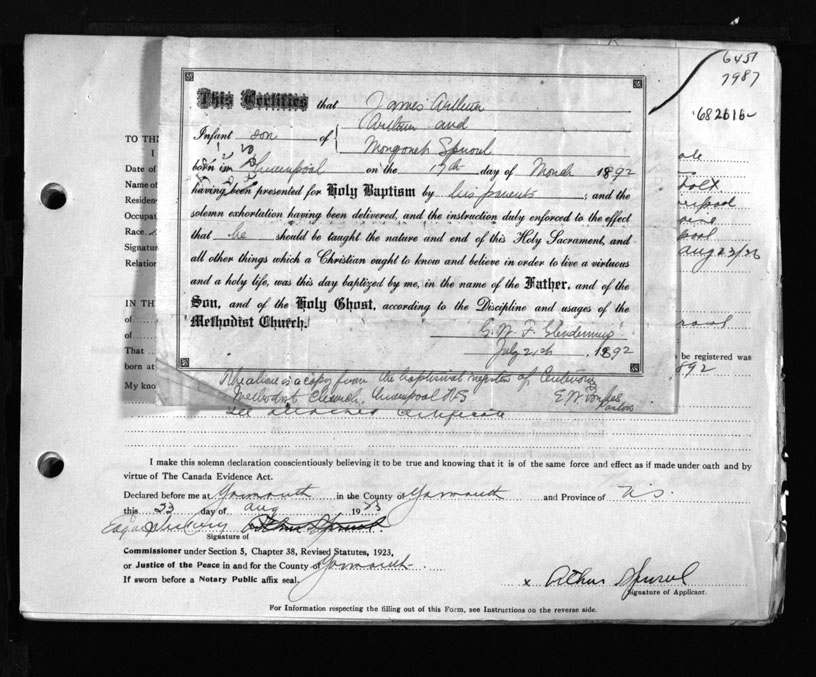 6451
7987
682616-
This Certifies that James Arthur
Arthur and
Infant son of
Sproul
born in Liverpool on the 17th day of March 1892
having been presented for Holy Baptism by his parents ; and the
solemn exhortation having been delivered, and the instruction duly enforced to the effect
that he should be taught the nature and end of this Holy Sacrament, and
all other things which a Christian ought to know and believe in order to live a virtuous
and a holy life, was this day baptized by me, in the name of the Father, and of the
Son, and of the Holy Ghost, according to the Discipline and usages of the
Methodist Church.
G. W. F. Glendenning
July 21st, 1892
The above is a copy from the baptismal register of
Methodist Church, Liverpool N S
E W
Pastor
See attached certificate
TO TH
I
Date of
Name of
Residen
Occupat
Race
Signatur
Relation
Aug 23/26
IN TH
of
of
That
be registered was
born at
892
My kno
I make this solemn declaration conscientiously believing it to be true and knowing that it is of the same force and effect as if made under oath and by
virtue of The Canada Evidence Act.
Declared before me at Yarmouth in the County of Yarmouth and Province of N.S.
this 23 day of Aug 19
Signature of
Commissioner under Section 5, Chapter 38, Revised Statutes, 1923,
or Justice of the Peace in and for the County of Yarmouth
If sworn before a Notary Public affix seal.
x Arthur Sproul
Signature of Applicant.
For Information respecting the filling out of this Form, see Instructions on the reverse side.